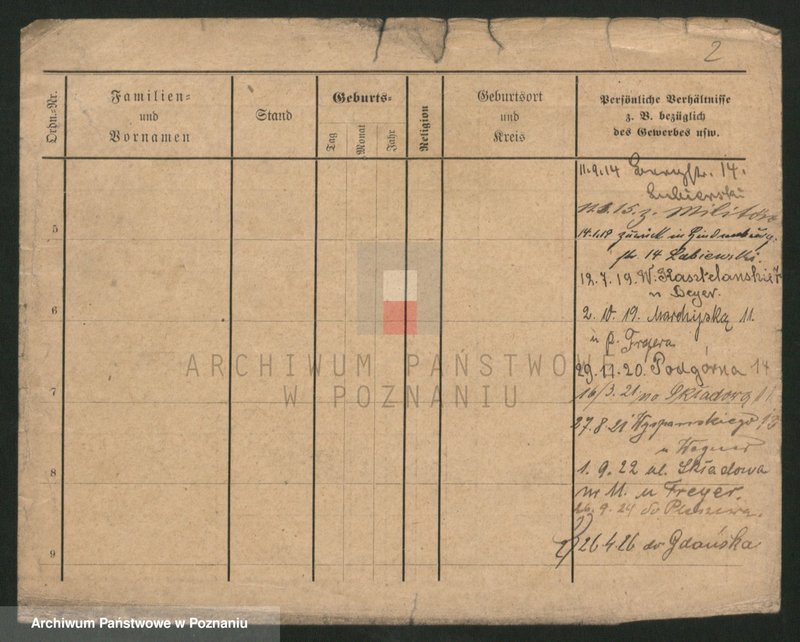 2
Ordn.-Nr.
Familien-
und
Vornamen
Stand
Geburts-
Tag
Monat
Jahr
Religion
Geburtsort
und
Kreis
Persönliche Verhältnisse
z. B. bezüglich
des Gewerbes usw.
11.9.14 14.
15. z. Militär
14.1.18 zurück in
14
12.7.19. W.
u Beyer.
5
6
7
8
9
2. 19. 11.
u p. Freyera
29.11.20. Podgórna 14
16/3.21 na Składową 11.
27.8 21 Wyspianskiego
u Wegner
1.9.22 ul. Składowa
nr 11. u Freyer.
26.9.24 do Pleszewa.
26 4.26 do Gdańska
ARCHIWUM PAŃSTWOWE
W POZNANIU
Archiwum Państwowe w Poznaniu